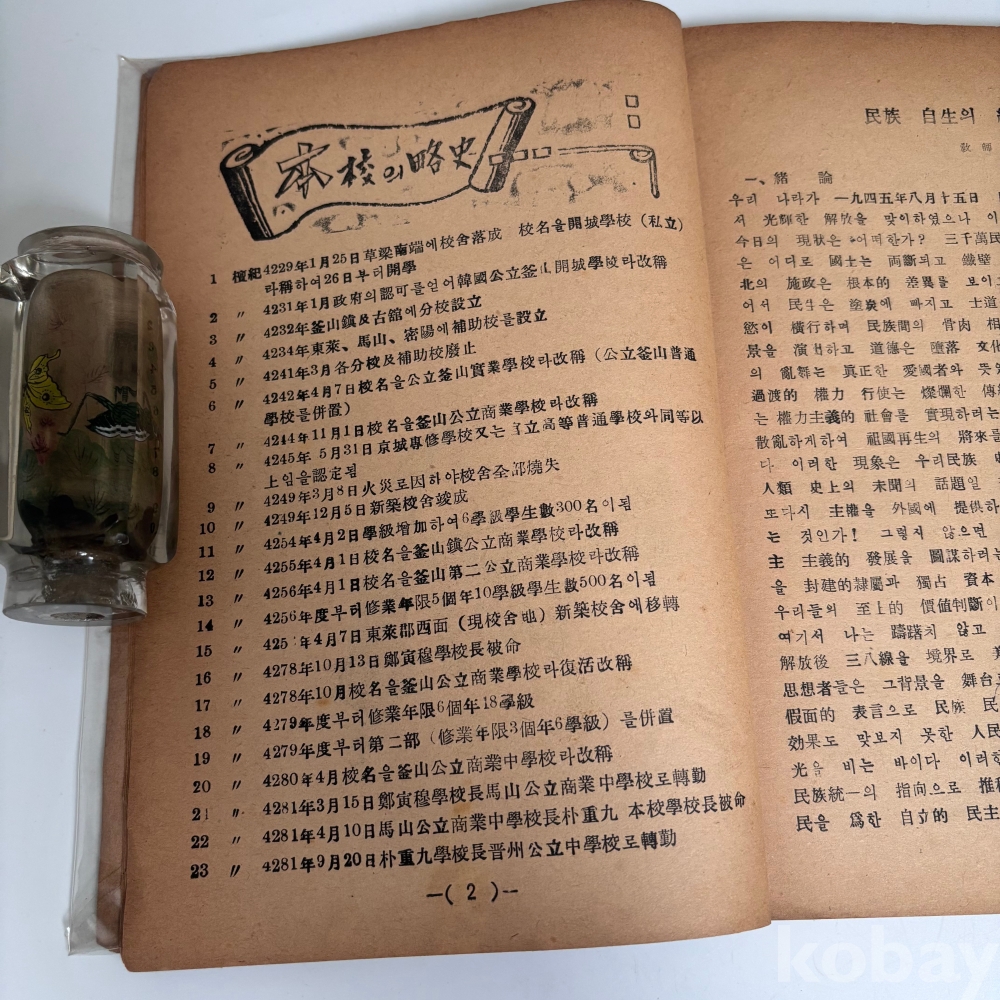 本校의略史
1 檀紀4229年1月25日草梁南端에校舍落成 校名을開城學校 (私立)
라稱하여26日부터開學
2 〃 4231年1月政府의認可를얻어韓國公立釜山開城學校라改稱
3 〃 4232年釜山鎭及古舘에分校設立
4 〃 4234年東萊、馬山、密陽에補助校를設立
5 〃 4241年3月各分校及補助校廢止
6 〃 4242年4月7日校名을公立釜山實業學校라改稱 (公立釜山普通
學校를併置)
7 〃 4244年11月1日校名을釜山公立商業學校라改稱
8 〃 4245年 5月31日京城專修學校又는 立高等普通學校와同等以
上임을認定됨
9 〃 4249年3月8日火災로因하야校舍全部燒失
10 〃 4249年12月5日新築校舍竣成
11 〃 4254年4月2日學級增加하여6學級學生數300名이됨
12 〃 4255年4月1日校名을釜山鎭公立商業學校라改稱
13 〃 4256年4月1日校名을釜山第二公立商業學校라改稱
14 〃 4256年度부터修業年限5個年10學級學生數500名이됨
15 〃 425 年4月7日東萊郡西面 (現校舍地) 新築校舍에移轉
16 〃 4278年10月13日鄭寅穆學校長被命
17 〃 4278年10月校名을釜山公立商業學校라復活改稱
18 〃 4279年度부터修業年限6個年18學級
19 〃 4279年度부터第二部 (修業年限3個年6學級) 를併置
20 〃 4280年4月校名을釜山公立商業中學校라改稱
21 〃 4281年3月15日鄭寅穆學校長馬山公立商業中學校로轉勤
22 〃 4281年4月10日馬山公立商業中學校長朴重九 本校學校長被命
23 〃 4281年9月20日朴重九學校長晋州公立中學校로轉勤
—( 2 )—
民族 自生의
敎師
一、緖 論
우리 나라가 一九四五年八月十五日
서 光輝한 解放을 맞이하였으나 이
今日의 現狀은 어떠한가? 三千萬民
은 어디로 國土는 兩斷되고 鐵壁
北의 施政은 根本的 差異를 보이고
어서 民生은 塗炭에 빠지고 士道
慾이 橫行하며 民族間의 骨肉 相
景을 演出하고 道德은 墮落 文化
의 亂舞는 眞正한 愛國者와 뜻있
過渡的 權力 行使는 燦爛한 傳
는 權力主義的 社會를 實現하려는
散亂하게하여 祖國再生의 將來를
다 이러한 現象은 우리民族
人類 史上의 未聞의 話題일
또다시 主權을 外國에 提供하
는 것인가! 그렇지 않으면
主 主義的 發展을 圖謀하려는
을 封建的隷屬과 獨占 資本
우리들의 至上的 價値判斷이
여기서 나는 躊躇치 않고
解放後 三八線을 境界로 美
思想者들은 그背景을 舞台로
假面的 表言으로 民族 民
效果도 맛보지 못한 人民
光을 비는 바이다 이러한
民族統一의 指向으로 推移
民을 爲한 自立的 民主
kobay